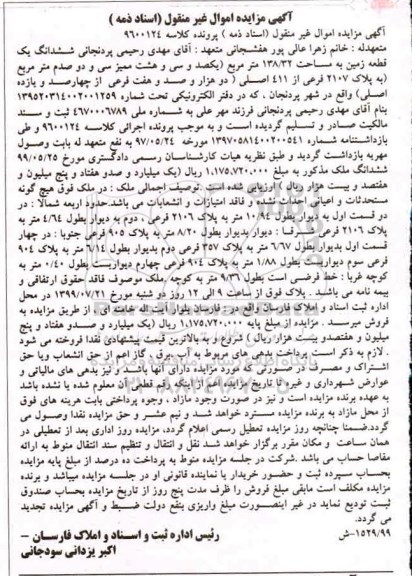 آگهی مزایده اموال غیر منقول (اسناد ذمه )
آگهی مزایده اموال غیر منقول (اسناد ذمه ) پرونده کلاسه ۹۶۰۰۱۲۴
متعهدله : خانم زهرا عالی پور هفشجانی متعهد : آقای مهدی رحیمی پردنجانی ششدانگ یک
قطعه زمین به مساحت ۱۳۸/۳۲ متر مربع (یکصد و سی و هشت ممیز سی و دو صدم متر مربع
(به پلاک ۲۱۰۷ فرعی از ۴۱۱ اصلی ( دو هزار و صد و هفت فرعی از چهارصد و یازده
اصلی) واقع در شهر پردنجان ، که در دفتر الکترونیکی تحت شماره ۱۳۹۵۲۰۳۱۴۰۰۲۰۰۱۲۵۹
بنام آقای مهدی رحیمی پردنجانی فرزند مهر علی به شماره ملی ۴۶۷۰۰۰۶۷۸۹ ثبت و سند
مالکیت صادر و تسلیم گردیده است و به موجب پرونده اجرائی کلاسه ۹۶۰۰۱۲۴ و طی
بازداشتنامه شماره ۱۳۹۷۰۵۸۱۴۰۰۲۰۰۵۴۱ مورخه ۹۷/۰۵/۲۴ به نفع متعهد له بابت وصول
مهریه بازداشت گردید و طبق نظریه هیات کارشناسان رسمی دادگستری مورخ ۹۹/۰۵/۲۵
ششدانگ ملک مذکور به مبلغ ۱,۱۷۵,۷۲۰,۰۰۰ ریال (یک میلیارد و صدو هفتاد و پنج میلیون و
هفتصد و بیست هزار ریال) ارزیابی شده است . توصیف اجمالی ملک : در ملک فوق هیچ گونه
مستحدثات و اعیانی یافت نشده و فاقد امتیازات و انشعابات می باشد.حدود اربعه شمالا : در
دو قسمت اول به دیوار بطول ۱۰/۴۰ متر به پلاک ۲۱۰۶ فرعی ، دوم به دیوار بطول ۴/۶۴ متر به
پلاک ۲۱۰۶ فرعی شرقا : دیوار بدیوار بطول ۸/۲۰ متر به پلاک ۹۰۵ فرعی جنوبا : در چهار
قسمت اول بدیوار بطول ۶/۶۷ متر به پلاک ۳۵۷ فرعی دوم بدیوار بطول ۶/۱۴ متر به پلاک ۹۰۴
فرعی سوم دیواریست بطول ۱/۸۸ متر به پلاک ۹۰۴ فرعی چهارم دیواریست بطول ۰/۴۰ متر به
کوچه غربا : خط فرضی است بطول ۹/۳۶ متر به کوچه .ملک موصوف فاقد حقوق ارتفاقی و
بیمه نامه می باشید . پلاک فوق از ساعت ۹ الی ۱۲ روز دو شنبه مورخ ۱۳۹۹/۰۷/۲۱ در محل
اداره ثبت اسناد و املاک فارسان واقع در : فارسان بلوار آیت اله خامنه ای . از طریق مزایده به
فروش میرسد . مزایده از مبلغ پایه ۱,۱۷۵,۷۲۰,۰۰۰ ریال (یک میلیارد و صدو هفتاد و پنج
میلیون و هفتصدو بیست هزار ریال ) شروع و به بالاترین قیمت پیشنهادی نقدا فروخته می شود
. لازم به ذکر است پرداخت بدهی های مربوط به آب،برق ، گاز اعم از حق انشعاب ویا حق
اشتراک و مصرف در صورتی که مورد مزایده دارای آنها باشد،و نیز بدهی های مالیاتی و
عوارض شهرداری و غیره تا تاریخ مزایده اعم از اینکه رقم قطعی آن معلوم شده یا نشده باشد
به عهده برنده مزایده است و نیز در صورت وجود مازاد ، وجوه پرداختی بابت هزینه های فوق
از محل مازاد به برنده مزایده مسترد خواهد شد و نیم عشر و حق مزایده نقدا وصول می
گردد.ضمنا چنانچه روز مزایده تعطیل رسمی اعلام گردد، مزایده روز اداری بعد از تعطیلی در
همان ساعت و مکان مقرر برگزار خواهد شد نقل و انتقال و تنظیم سند انتقال منوط به ارائه
مفاصا حساب می باشد .شرکت در جلسه مزایده منوط به پرداخت ده درصد از مبلغ پایه مزایده
بحساب سپرده ثبت و حضور خریدار یا نماینده قانونی او در جلسه مزایده میباشد و برنده
مزایده مکلف است مابقی مبلغ فروش را ظرف مدت پنج روز از تاریخ مزایده بحساب صندوق
ثبت تودیع نماید در غیر اینصورت مبلغ واریزی بنفع دولت ضبط و آگهی مزایده تجدید
می گردد.
رئیس اداره ثبت و اسناد و املاک فارسان –
اکبر یزدانی سودجانی
۱۵۲۹/۹۹–ش